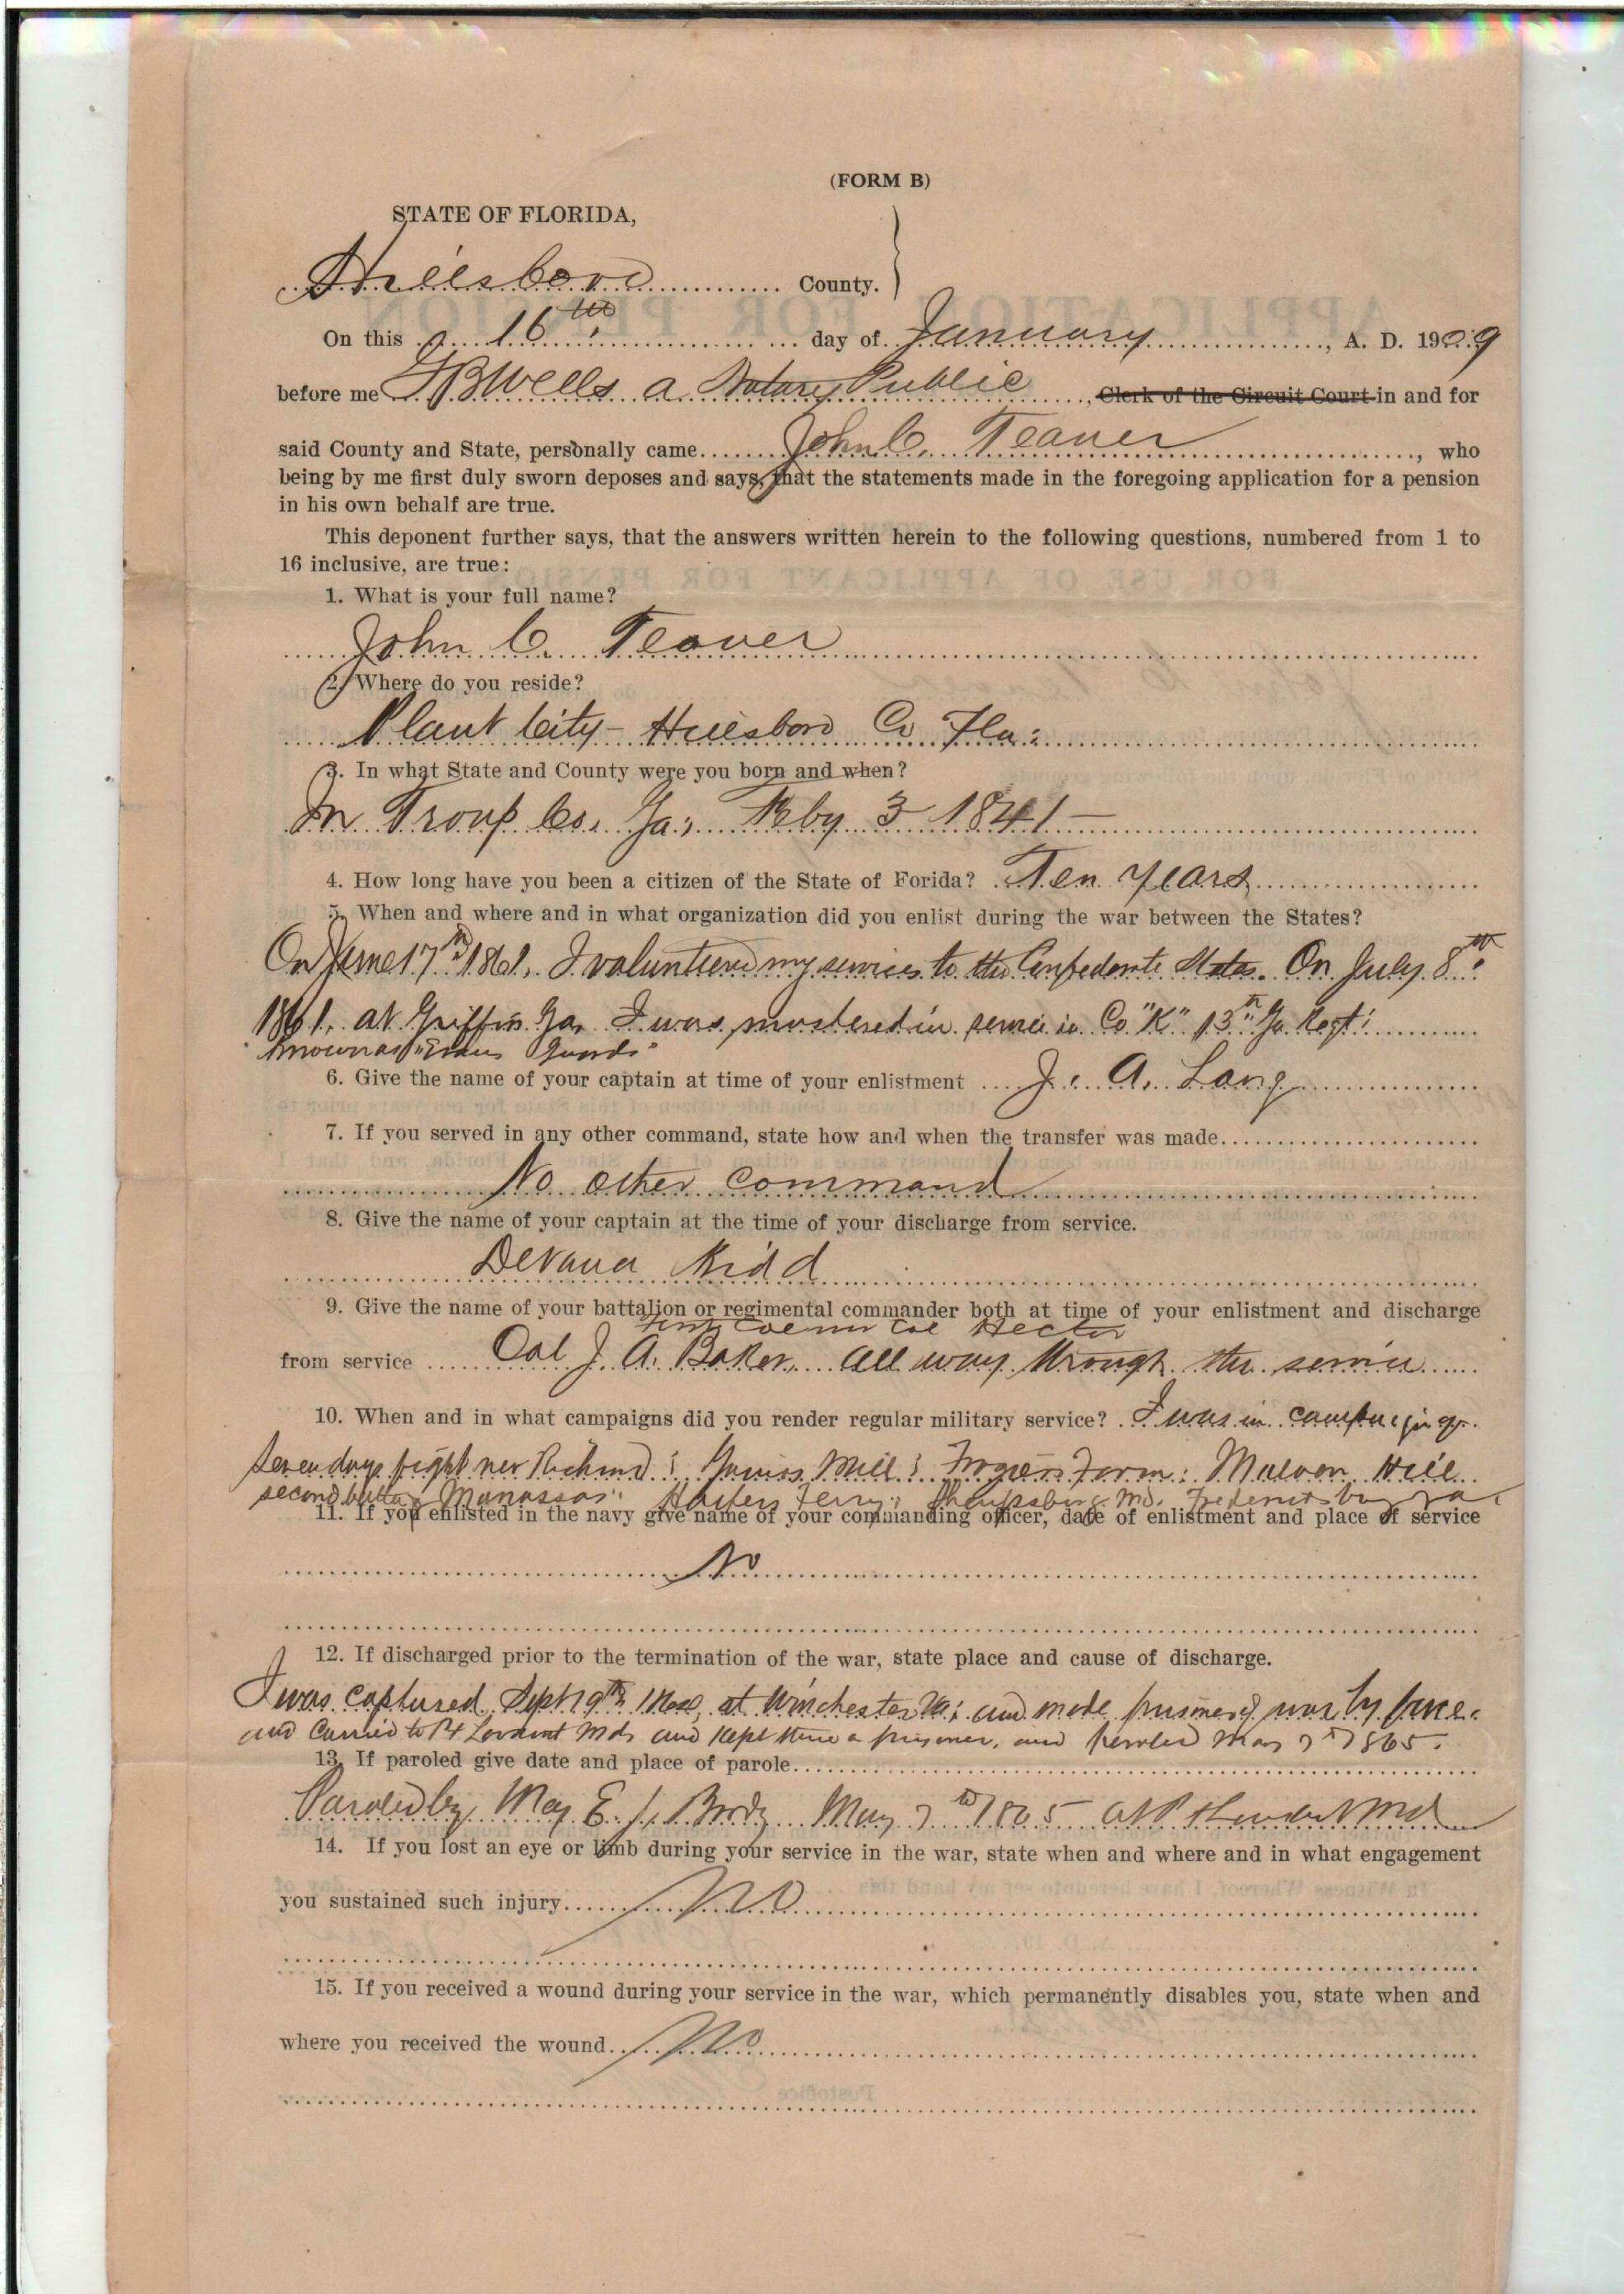 (FORM B)
STATE OF FLORIDA,
Hillsboro County.
On this 16th day of January, A. D. 1909
before me Wells a Notary Public, Clerk of the Circuit Court in and for
said County and State, personally came John C. Teaver, who
being by me first duly sworn deposes and says, that the statements made in the foregoing application for a pension
in his own behalf are true.
This deponent further says, that the answers written herein to the following questions, numbered from 1 to
16 inclusive, are true:
1. What is your full name?
John C. Teaver
2. Where do you reside?
Plant City - Hillsboro Co Fla.
3. In what State and County were you born and when?
In Troup Co. Ga; Feby 3 1841 —
4. How long have you been a citizen of the State of Forida? Ten years
5. When and where and in what organization did you enlist during the war between the States?
On June 17th 1861. I volunteered my services to the Confederate States. On July 8th
1861. at Griffin Ga. I was mustered in service in Co "K" 13th Ga. Regt.
known as "Evans Guards"
6. Give the name of your captain at time of your enlistment J. A. Long
7. If you served in any other command, state how and when the transfer was made
No other command
8. Give the name of your captain at the time of your discharge from service.
Kidd
9. Give the name of your battalion or regimental commander both at time of your enlistment and discharge
Col Hector
from service Col J. A. Baker all way through the service
10. When and in what campaigns did you render regular military service? I was in
Seven days fight Richmd; Mill; Farm; Malvern Hill
second battle Manassas; Harpers Ferry; Sharpsburg Md. Fredericksburg Va.
11. If you enlisted in the navy give name of your commanding officer, date of enlistment and place of service
No
12. If discharged prior to the termination of the war, state place and cause of discharge.
I was captured Sept 19th at Winchester Va; and made prisoner of war by force
and carried to Pt Lookout Md and kept there a prisoner, and paroled May 1865.
13. If paroled give date and place of parole
Paroled by Maj May 1865 at Pt Lookout Md
14. If you lost an eye or limb during your service in the war, state when and where and in what engagement
you sustained such injury No
15. If you received a wound during your service in the war, which permanently disables you, state when and
where you received the wound No